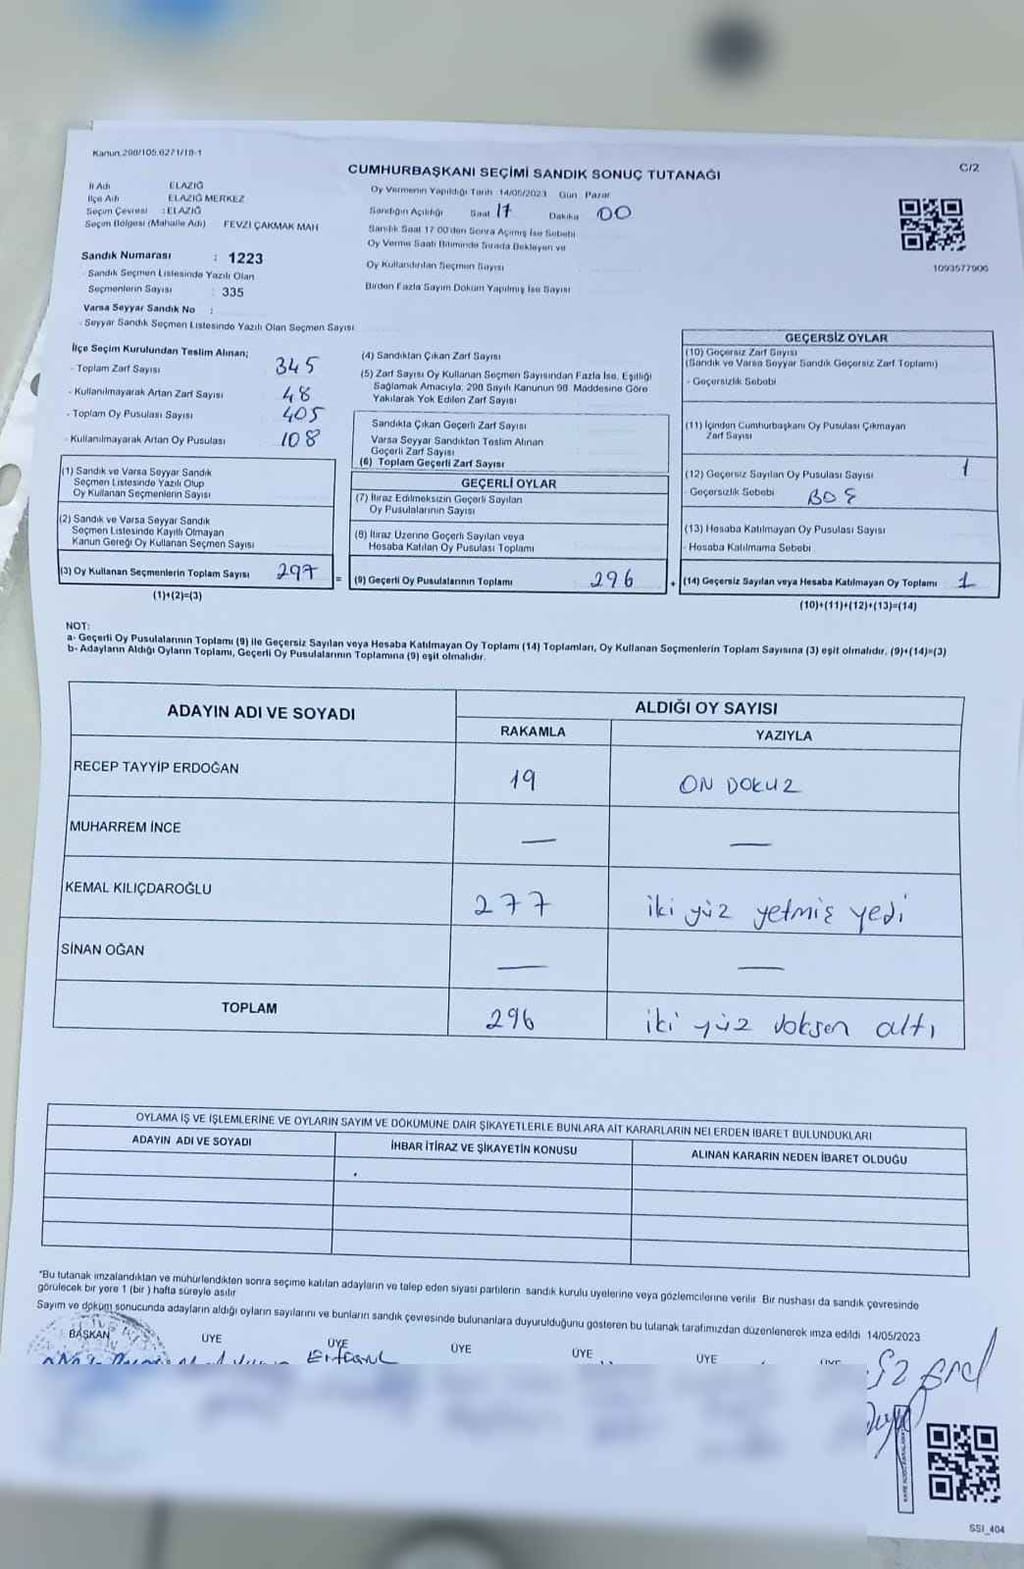 Kanun.298/105.6271/18-1
C/2
CUMHURBAŞKANI SEÇİMİ SANDIK SONUÇ TUTANAĞI
İl Adı ELAZIĞ
İlçe Adı ELAZIĞ MERKEZ
Seçim Çevresi : ELAZIĞ
Seçim Bölgesi (Mahalle Adı) FEVZİ ÇAKMAK MAH
Oy Vermenin Yapıldığı Tarih 14/05/2023 Gün Pazar
Sandığın Açıldığı Saat 17 Dakika 00
Sandık Saat 17.00'den Sonra Açılmış İse Sebebi
Oy Verme Saati Bitiminde Sırada Bekleyen ve
Oy Kullandırılan Seçmen Sayısı
Birden Fazla Sayım Döküm Yapılmış İse Sayısı
1093577906
Sandık Numarası : 1223
Sandık Seçmen Listesinde Yazılı Olan
Seçmenlerin Sayısı : 335
Varsa Seyyar Sandık No :
Seyyar Sandık Seçmen Listesinde Yazılı Olan Seçmen Sayısı
İlçe Seçim Kurulundan Teslim Alınan;
- Toplam Zarf Sayısı 345
- Kullanılmayarak Artan Zarf Sayısı 48
- Toplam Oy Pusulası Sayısı 405
- Kullanılmayarak Artan Oy Pusulası 108
(1) Sandık ve Varsa Seyyar Sandık
Seçmen Listesinde Yazılı Olup
Oy Kullanan Seçmenlerin Sayısı
(2) Sandık ve Varsa Seyyar Sandık
Seçmen Listesinde Kayıtlı Olmayan
Kanun Gereği Oy Kullanan Seçmen Sayısı
(3) Oy Kullanan Seçmenlerin Toplam Sayısı 297
(1)+(2)=(3)
(4) Sandıktan Çıkan Zarf Sayısı
(5) Zarf Sayısı Oy Kullanan Seçmen Sayısından Fazla İse, Eşitliği
Sağlamak Amacıyla, 298 Sayılı Kanunun 98. Maddesine Göre
Yakılarak Yok Edilen Zarf Sayısı
Sandıkta Çıkan Geçerli Zarf Sayısı
Varsa Seyyar Sandıktan Teslim Alınan
Geçerli Zarf Sayısı
(6) Toplam Geçerli Zarf Sayısı
GEÇERLİ OYLAR
(7) İtiraz Edilmeksizin Geçerli Sayılan
Oy Pusulalarının Sayısı
(8) İtiraz Üzerine Geçerli Sayılan veya
Hesaba Katılan Oy Pusulası Toplamı
= (9) Geçerli Oy Pusulalarının Toplamı 296
GEÇERSİZ OYLAR
(10) Geçersiz Zarf Sayısı
(Sandık ve Varsa Seyyar Sandık Geçersiz Zarf Toplamı)
- Geçersizlik Sebebi
(11) İçinden Cumhurbaşkanı Oy Pusulası Çıkmayan
Zarf Sayısı
(12) Geçersiz Sayılan Oy Pusulası Sayısı 1
- Geçersizlik Sebebi BOŞ
(13) Hesaba Katılmayan Oy Pusulası Sayısı
- Hesaba Katılmama Sebebi
+ (14) Geçersiz Sayılan veya Hesaba Katılmayan Oy Toplamı 1
(10)+(11)+(12)+(13)=(14)
NOT:
a- Geçerli Oy Pusulalarının Toplamı (9) ile Geçersiz Sayılan veya Hesaba Katılmayan Oy Toplamı (14) Toplamları, Oy Kullanan Seçmenlerin Toplam Sayısına (3) eşit olmalıdır. (9)+(14)=(3)
b- Adayların Aldığı Oyların Toplamı, Geçerli Oy Pusulalarının Toplamına (9) eşit olmalıdır.
ADAYIN ADI VE SOYADI
ALDIĞI OY SAYISI
RAKAMLA YAZIYLA
RECEP TAYYİP ERDOĞAN 19 ON DOKUZ
MUHARREM İNCE — —
KEMAL KILIÇDAROĞLU 277 iki yüz yetmiş yedi
SİNAN OĞAN — —
TOPLAM 296 iki yüz doksen altı
OYLAMA İŞ VE İŞLEMLERİNE VE OYLARIN SAYIM VE DÖKÜMÜNE DAİR ŞİKAYETLERLE BUNLARA AİT KARARLARIN NELERDEN İBARET BULUNDUKLARI
ADAYIN ADI VE SOYADI İHBAR İTİRAZ VE ŞİKAYETİN KONUSU ALINAN KARARIN NEDEN İBARET OLDUĞU
*Bu tutanak imzalandıktan ve mühürlendikten sonra seçime katılan adayların ve talep eden siyasi partilerin sandık kurulu üyelerine veya gözlemcilerine verilir. Bir nushası da sandık çevresinde
görülecek bir yere 1 (bir) hafta süreyle asılır
Sayım ve döküm sonucunda adayların aldığı oyların sayılarını ve bunların sandık çevresinde bulunanlara duyurulduğunu gösteren bu tutanak tarafımızdan düzenlenerek imza edildi. 14/05/2023
BAŞKAN ÜYE ÜYE ÜYE ÜYE ÜYE
SSI_404